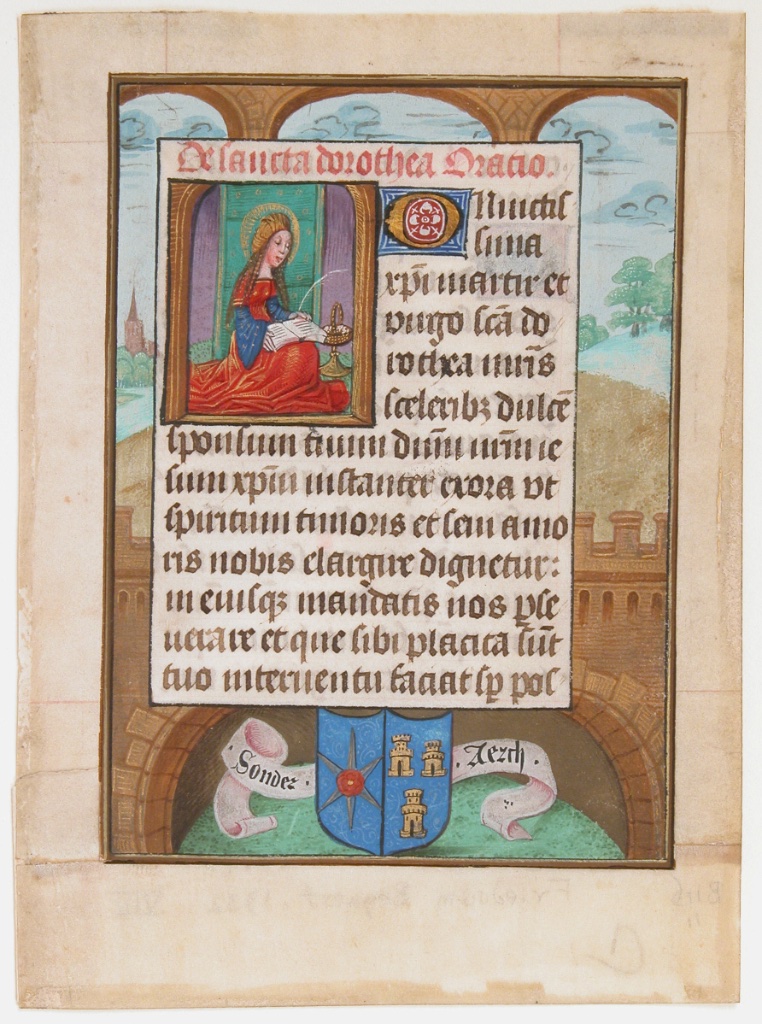 De sancta dorothea Oratio.
O Inuictis
sima
xp̄i martir et
uirgo scā do
rothea nr̄is
sceleribꝫ dulcē
sponsum tuum dn̄m nr̄m ie
sum xp̄m instanter exora vt
spiritum timoris et sem amo
ris nobis elargire dignetur:
in eiusqꝫ mandatis nos ꝑse
uerare et que sibi placita sūt
tuo interuentu faciat sꝑ pos
Sondez
Aerch